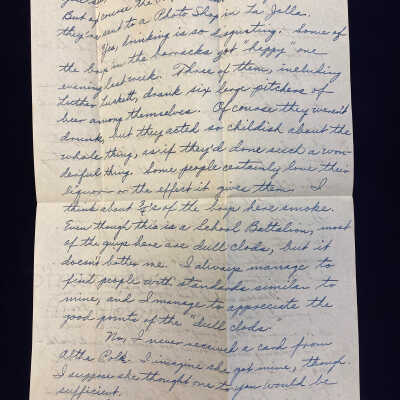 But of course the
they're sent to a Photo Shop in La Jolla.
Yes, drinking is so disgusting. Some of
the boys in the barracks got "happy" one
evening last week. Three of them, including
Luther Luskett, drank six large pitchers of
beer among themselves. Of course they weren't
drunk, but they acted so childish about the
whole thing, as if they'd done such a won-
derful thing. Some people certainly love their
liquor or the effect it gives them. I
think about ¾'s of the boys here smoke.
Even though this is a School Battalion, most
of the guys here are dull clods, but it
doesn't bother me. I always manage to
find people with standards similar to
mine, and I manage to appreciate the
good points of the "dull clods."
No, I never received a card from
Altha Polk. I imagine she got mine, though.
I suppose she thought one to you would be
sufficient.